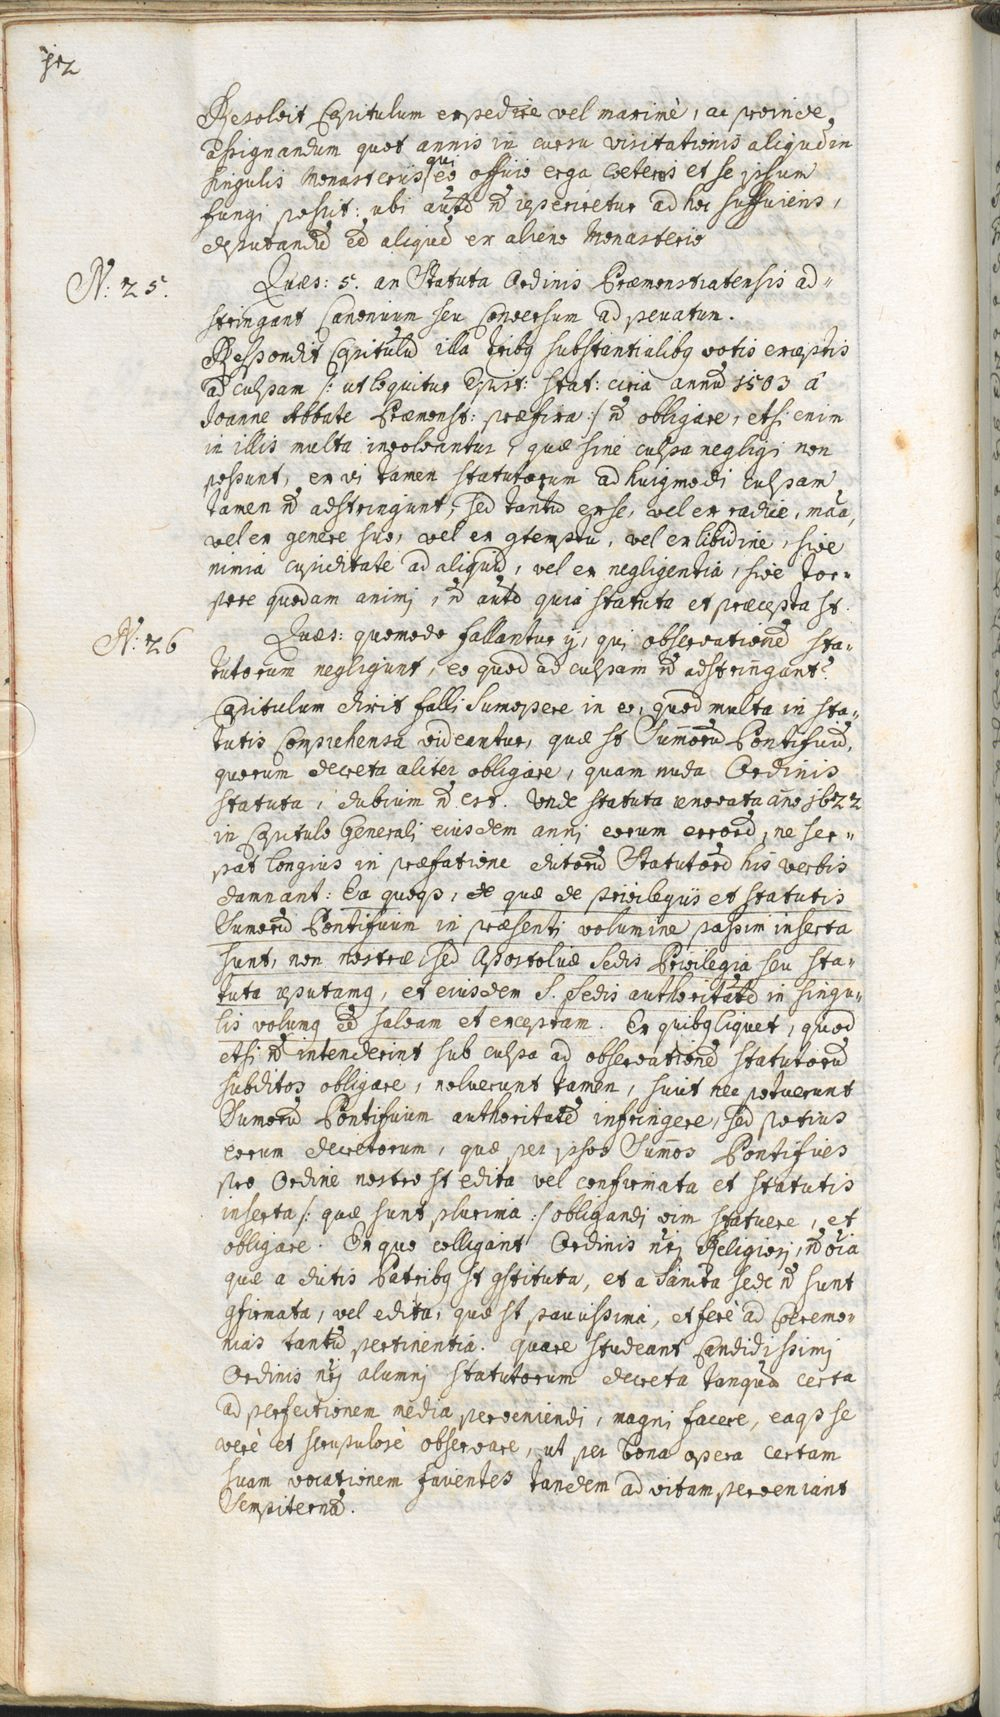 Resolvit Capitulum expedire vel maximè, ac proinde
assignandum quot annis in cursu visitationis aliqud̄ in
singulis Monasteriis qui eo officio erga cœteros et se ipsum
fungi possit: ubi aut̄ n̄ reperiretur ad hoc sufficiens,
deputandū eē aliquē ex alieno Monasterio
N: 25.
Quæs: 5. an Statuta Ordinis Præmonstratensis ad„
stringant Canonicum seu Conversum ad peccatum.
Respondit Capitulū illa tribq substantialibq votis exceptis
ad culpam /: ut loquitur Epist: stat: circa annū 1503 â
Joanne Abbate Præmonst: præfixa :/ n̄ obligare, etsi enim
in illis multa involvantur, quæ sine culpa negligi non
possunt, ex vi tamen statutorum ad huiqmodi culpam
tamen n̄ adstringunt, sed tantū ex se, vel ex radice, mãa,
vel ex genere suo, vel ex gtemptu, vel ex libidine, sive
nimia cupiditate ad aliquid, vel ex negligentia, sive tor„
pore quodam animi, n̄ aut̄ quia statuta et præcepta st̄.
N: 26
Quæs: quomodo fallantur ij, qui observationē sta„
tutorum negligunt, eo quod ad culpam n̄ adstringant?
Capitulum dixit falli Sumopere in eo, quod multa in sta„
tutis Comprehensa videantur, quæ st̄ Sumorū Pontificū,
quorum decreta aliter obligare, quam nuda Ordinis
statuta, dubium n̄ est. Unde statuta renovata año 1622
in Capitulo Generali eiusdem anni eorum errorē, ne ser„
pat longius in præfatione dictorū Statutorū his verbis
damnant: Ea quoqs, de quæ de privilegiis et statutis
Sumorū Pontificum in præsenti volumine passim inserta
sunt, non nostræ sed Apostolicæ Sedis Privilegia seu sta„
tuta reputamq, et eiusdem S. Sedis authoritatē in singu„
lis volumq eē salvam et exceptam. Ex quibq liquet, quod
etsi n̄ intenderint sub culpa ad observationē statutorū
subditos obligare, noluerunt tamen, sicut nec potuerunt
Sumorū Pontificum authoritatē infringere, sed potius
eorum decretorum, quæ per ipsos Summos Pontifices
pro Ordine nostro st̄ edita vel confirmata et statutis
inserta /: quæ sunt plurima :/ obligandi vim statuere, et
obligare. Ex quo colligant Ordinis nr̄i Religiosi, n̄ oĩa
quæ a dictis Patribq st̄ gstituta, et a Sancta sede n̄ sunt
gfirmata, vel edita, quæ st̄ paucissima, et ferè ad Cœremo„
nias tantū pertinentia. quare studeant Candidissimi
Ordinis nr̄i alumni statutorum decreta tanquā certa
ad perfectionem media perveniendi, magni facere, eaqs se
verè et scrupulosè observare, ut per bona opera certam
suam vocationem facientes tandem ad vitam perveniant
Sempiternā.